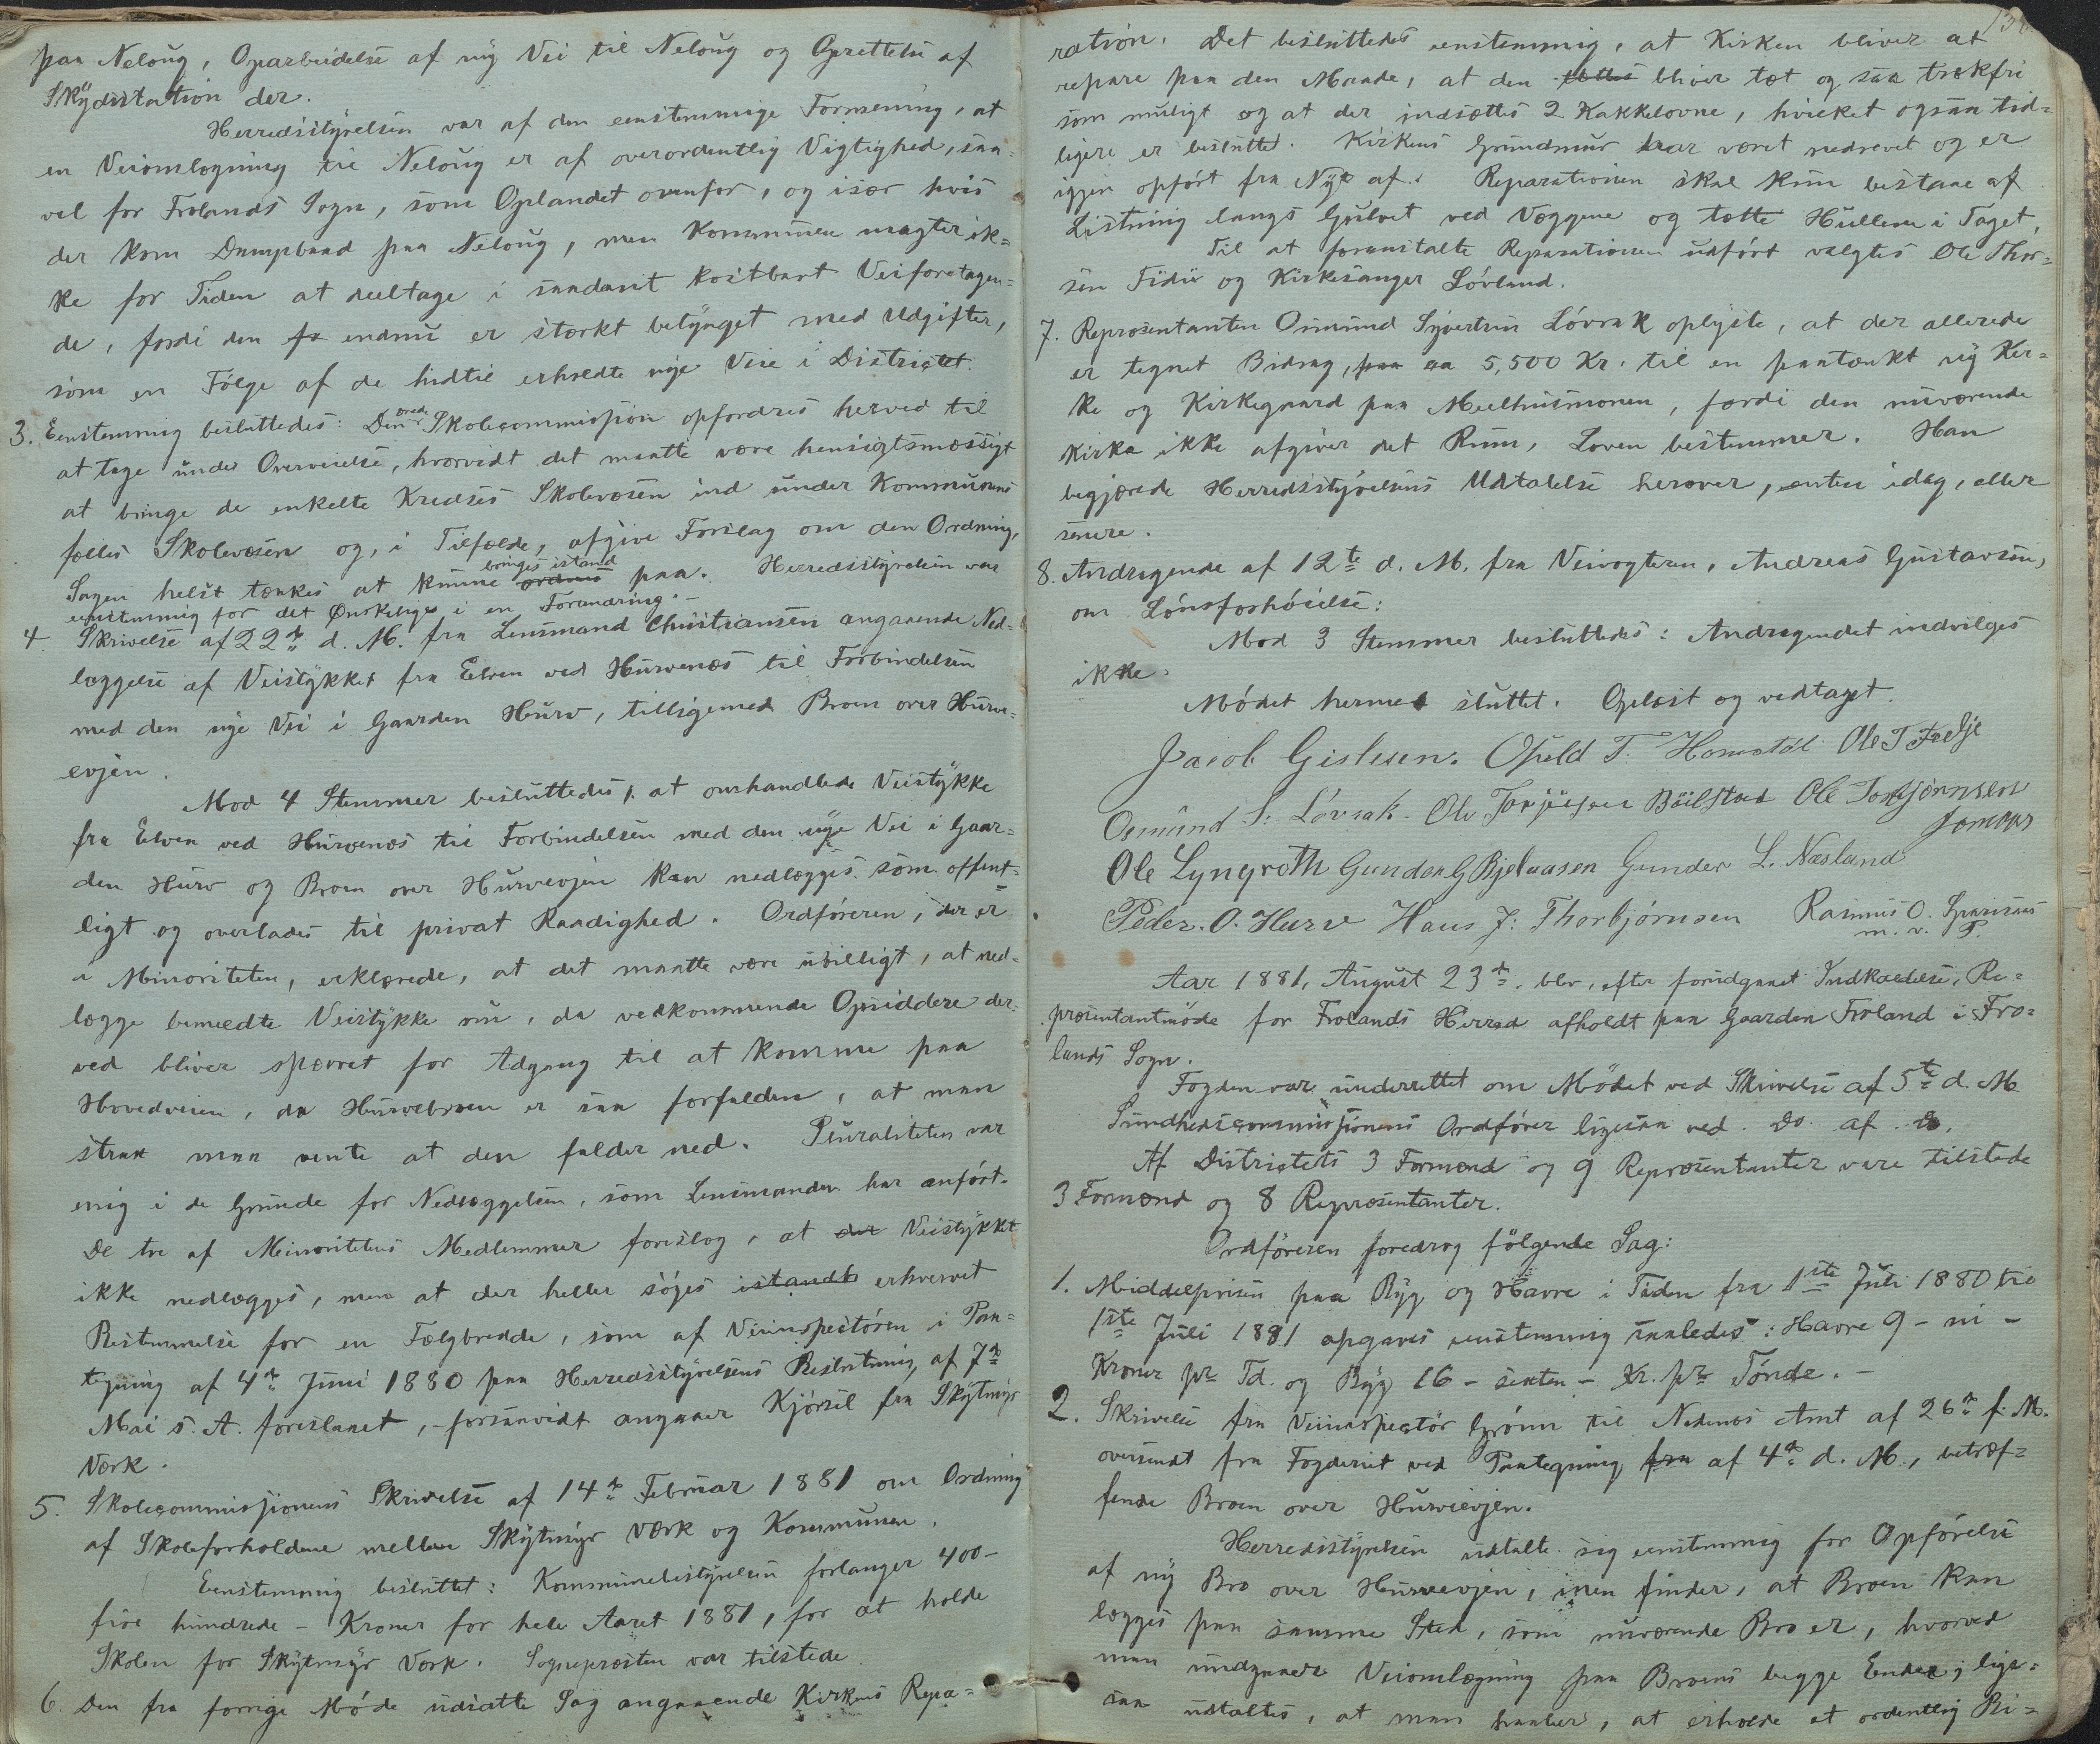 paa Neloug, Oparbeidelse af ny Vei til Neloug og Oprettelse af
Skydsstation der.
Herredsstyrelsen var af den eenstemmige Formening, at
en Veiomlægning til Neloug er af overordentlig Vigtighed, saa-
vel for Frolands Sogn, som Oplandet ovenfor, og især hvis
der kom Dampbaad paa Neloug, men Kommunen magter ik-
ke for Tiden at deeltage i saadant kostbart Veiforetagen-
de, fordi den endnu er stærkt betynget med Udgifter,
som en Følge af de hidtil erholdte nye Veie i Districtet.
3. Eenstemmig besluttedes: Den ærede Skolecommission opfordres herved til
at tage under Overveielse, hvorvidt det maatte være hensigtsmæssigt
at bringe de enkelte Kredses Skolevæsen ind under Kommunens
fælles Skolevæsen og, i Tilfælde, afgive Forslag om den Ordning,
Sagen helst tænkes at kunne ordnes bringes istand paa. Herredsstyrelsen var
eenstemmig for det Ønskelige i en Forandring.-
4. Skrivelse af 22de d. M. fra Lensmand Christiansen angaaende Ned-
læggelse af Veistykket fra Elven ved Hurvenæs til Forbindelsen
med den nye Vei i Gaarden Hurv, tilligemed Broen over Hurve-
evjen.
Mod 4 Stemmer besluttedes, at omhandlede Veistykke
fra Elven ved Hurvenæs til Forbindelsen med den nye Vei i Gaar-
den Hurv og Broen over Hurvevjen kan nedlægges som offent-
ligt og overlades til privat Raadighed. Ordføreren, der er
i Minoriteten, erklærede, at det maatte være ubilligt, at ned-
lægge bemeldte Veistykke nu, da vedkommende Opsiddere der-
ved bliver spærret for Adgang til at komme paa
Hovedveien, da Hurvebroen er saa forfalden, at man
strax maa vente at den falder ned. Pluraliteten var
enig i de Grunde for Nedlæggelsen, som Lensmanden har anført.
De tre af Minoritetens Medlemmer foreslog, at der Veistykket
ikke nedlægges, men at der heller søges istandb erhvervet
Bestemmelse for en Fælgbredde, som af Veiinspectøren i Paa-
tegning af 4de Juni 1880 paa Herredsstyrelsens Beslutning af 7de
Mai s. A. foreslaaet, forsaavidt angaaer Kjørsel fra Skytmyr
Værk.
5. Skolecommissionens Skrivelse af 14de Februar 1881 om Ordning
af Skoleforholdene mellem Skytmyr Værk og Kommunen.
Eenstemmig besluttet: Kommunebestyrelsen forlanger 400 -
fire hundrede - Kroner for hele Aaret 1881, for at holde
Skolen for Skytmyr Værk. Sognepræsten var tilstede.
6. Den fra forrige Møde udsatte Sag angaaende Kirkens Repa-
ration. Det besluttedes eenstemmig, at Kirken bliver at
repare paa den Maade, at den bliver tæt og saa trækfri
som muligt og at der indsættes 2 Kakkelovne, hvilket ogsaa tid-
ligere er besluttet. Kirkens Grundmur har været nedrevet og er
igjen opført fra Nyt af. Reparationen skal kun bestaae af
Listning langs Gulvet ved Væggene og tætte Hullerne i Taget.
Til at foranstalte Reparationen udført valgtes Ole Thor-
sen Fidie og Kirkesanger Løvland.
7. Repræsentanten Osmund Syvertsen Løvrak oplyste, at der allerede
er tegnet Bidrag, paa ca 5,500 Kr. til en paatænkt ny Kir-
ke og Kirkegaard paa Meelhusmonen, fordi den nuværende
Kirke ikke afgiver det Rum, Loven bestemmer. Han
begjærede Herredsstyrelsens Udtalelse herover, enten idag, eller
senere.
8. Andragende af 12te d. M. fra Veivogteren, Andreas Gustavsen,
om Lønsforhøielse:
Mod 3 Stemmer besluttedes: Andragendet indvilges
ikke.
Mødet hermed sluttet. Oplæst og vedtaget.
Jacob Gislesen. Opeld T. Homstøl Ole T Fidje
Osmund S. Løvrak. Ole Torjusen Bøilstad Ole Torbjørnsen
Jomaas
Ole Lyngroth Gunder G Bjelvaasen Gunder L. Næsland
Peder. O. Hurv Hans J. Thorbjørnsen Rasmus O.
m. v. P.
Aar 1881, August 23de blev, efter forudgaaet Indkaldelse, Re-
præsentantmøde for Frolands Herred afholdt paa Gaarden Froland i Fro-
lands Sogn.
Fogden var underrettet om Mødet ved Skrivelse af 5te d. M
Sundhedscommissionens Ordfører ligesaa ved do. af do.
Af Districtets 3 Formænd og 9 Repræsentanter vare tilstede
3 Formænd og 8 Repræsentanter.
Ordføreren foredrog følgende Sag:
1. Middelprisen paa Byg og Havre i Tiden fra 1ste Juli 1880 til
1ste Juli 1881 opgaves eenstemmig saaledes: Havre 9 - ni -
Kroner pr Td. og Byg 16 - sexten - Kr. pr Tønde.-
2. Skrivelse fra Veiinspectør Grønn til Nedenæs Amt af 26de f. M.
oversendt fra Fogderiet ved Paategning fra af 4de d. M., betræf-
fende Broen over Hurvevjen.
Herredsstyrelsen udtalte sig eenstemmig for Opførelse
af ny Bro over Hurveevjen, men finder, at Broen kan
lægges paa samme Sted, som nuværende Bro er, hvorved
man undgaaer Veiomlægning paa Broens begge Ender; lige-
saa udtaltes, at man haaber, at erholde et ordentlig Bi-